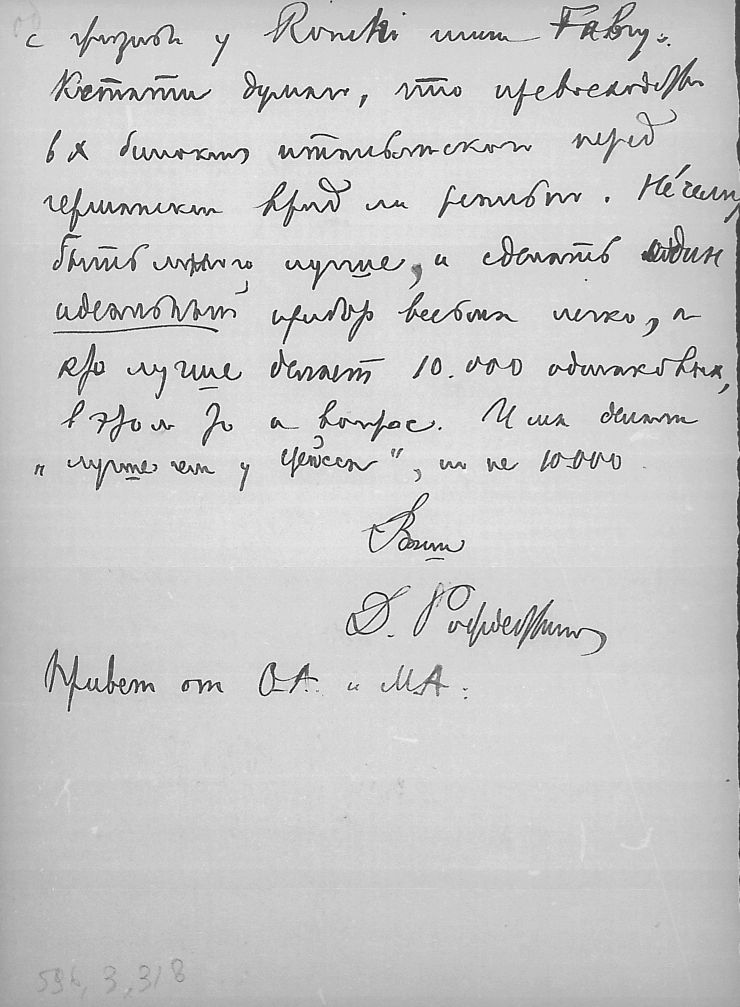 с физик у Ronchi или Fabry.
Кстати думаю, что превосходство
8х бинокля итальянского перед
германским вряд ли реально. Нечему
быть много лучше, и сделать один
идеальный прибор весьма легко, а
кто лучше делает 10.000 одинаковых,
в этом то и вопрос. И мы делали
„лучше чем у Цейсса“, но не 10000
Ваш
Д. Рождественский
Привет от О.А. и М.А.
596, 3, 318